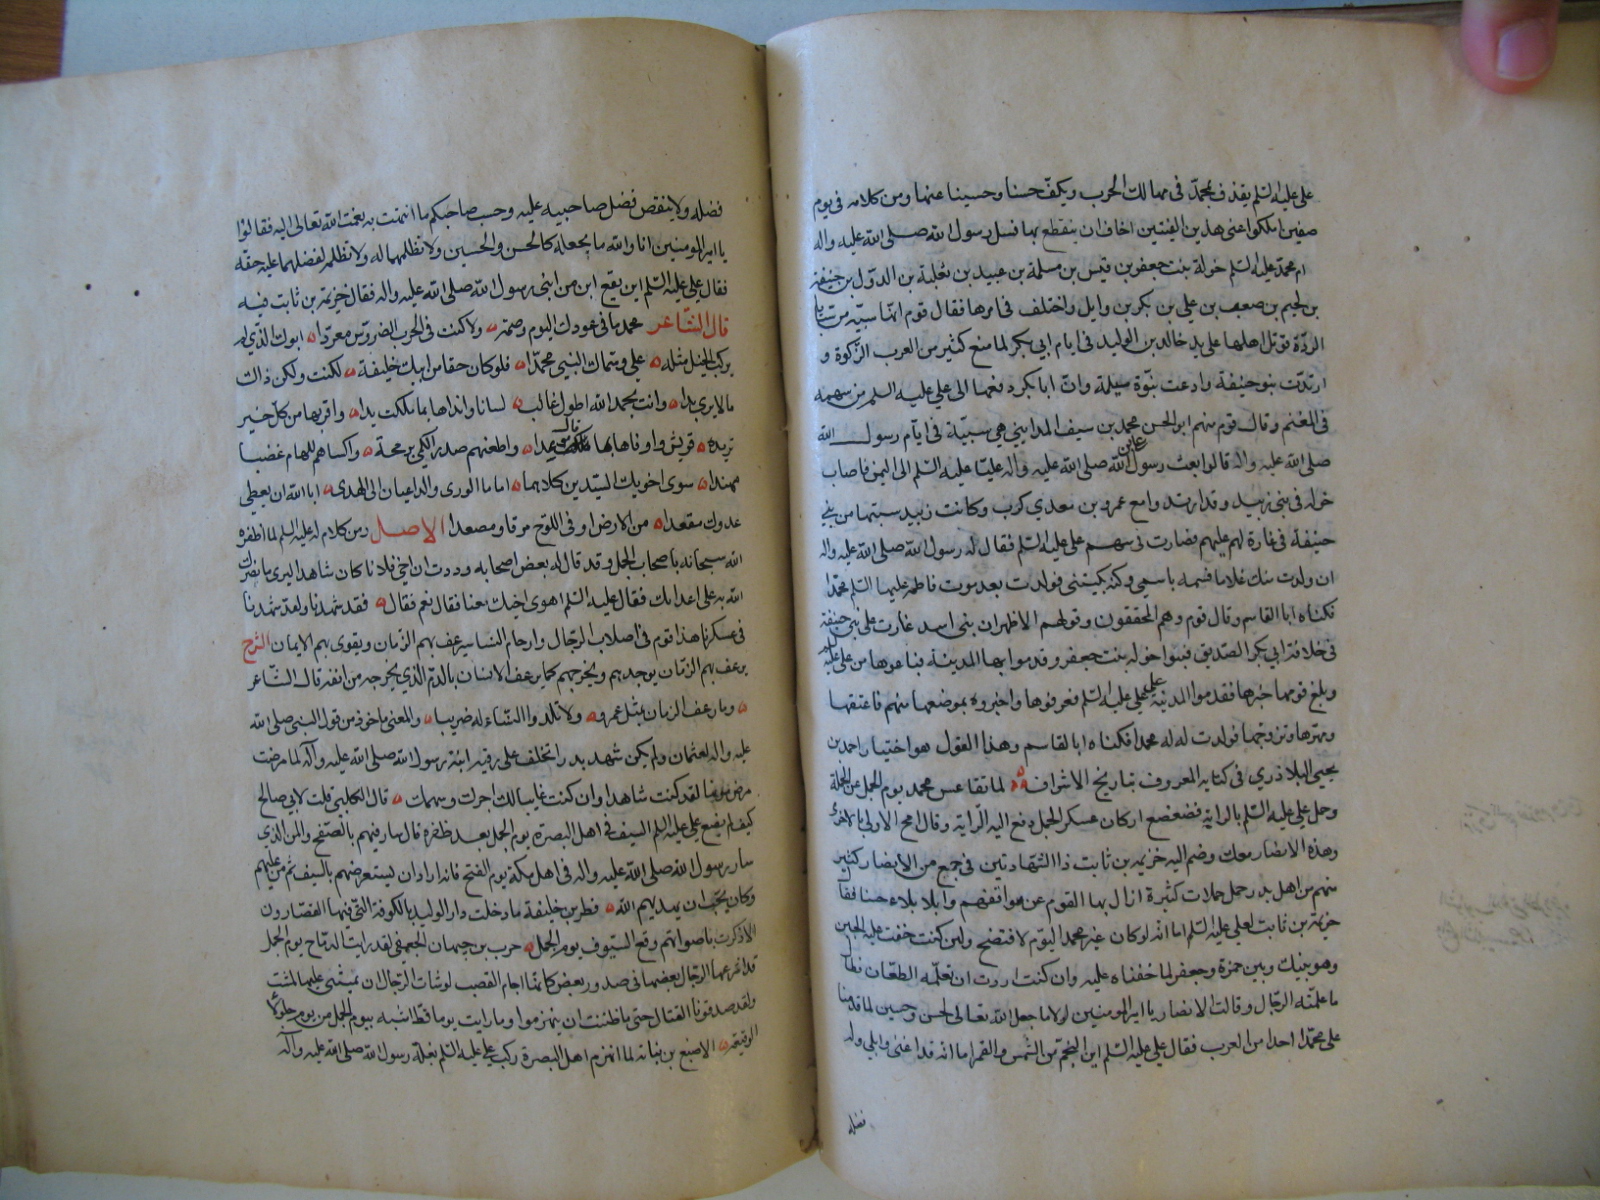 على عليه السلم يقذف بمحمد فى مهالك الحرب ويكف حسنا وحسينا عنها ومن كلامه فى يوم
صفين املكوا عنى هذين الفتيين اخاف ان ينقطع بهما نسل رسول الله صلى الله عليه واله
ام محمد عليه السلم خولة بنت جعفر بن قيس بن مسلمة بن عبيد بن ثعلبة بن الدول بن حنيفة
بن لجيم بن صعب بن على بن بكر بن وايل واختلف فى امرها فقال قوم انها سبية من سبايا
الردة قوتل اهلها على يد خالد بن الوليد فى ايام ابى بكر لما منع كثير من العرب الزكوة و
ارتدت بنو حنيفة وادعت نبوة مسيلمة وان ابا بكر دفعها الى على عليه السلم من سهمه
فى المغنم وقال قوم منهم ابو الحسن محمد بن سيف المداينى هى سبية فى ايام رسول الله
صلى الله عليه واله قالوا بعث رسول الله صلى الله عليه واله عليا عليه السلم الى اليمن فاصاب
خوله فى بنى زبيد وقد ارتدوا مع عمرو بن معدى كرب وكانت زبيد سبتها من بنى
حنيفة فى غارة لهم عليهم فصارت فى سهم على عليه السلم فقال له رسول الله صلى الله عليه واله
ان ولدت منك غلاما فسمه باسمى وكنه بكنيتى فولدت بعد موت فاطمة عليها السلم محمدا
فكناه ابا القاسم وقال قوم وهم المحققون وقولهم الاظهر ان بنى اسد غارت على بنى حنيفة
فى خلافة ابى بكر الصديق فسبوا خوله بنت جعفر وقدموا بها المدينة فباعوها من على عليه
وبلغ قومها خبرها فقدموا المدينة على على عليه السلم فعرفوها واخبروه بموضعها منهم فاعتقها
ومهرها وتزوجها فولدت له محمدا فكناه ابا القاسم وهذا القول هو اختيار احمد بن
يحيى البلاذرى فى كتابه المعروف بتاريخ الاشراف لما تقاعس محمد يوم الجمل عن الحملة
وحمل على عليه السلم بالراية فضعضع اركان عسكر الجمل دفع اليه الراية وقال امح الاولى بالاخرى
وهذه الانصار معك وضم اليه خزيمة بن ثابت ذا الشهادتين فى جمع من الانصار كثير
منهم من اهل بدر حمل حملات كثيرة ازال بها القوم عن مواقفهم وابلا بلاء حسنا فقال
خزيمة بن ثابت لعلى عليه السلم اما انه لو كان غير محمد اليوم لافتضح ولين كنت خفت عليه الجبن
وهو بينك وبين حمزة وجعفر لما خفناه عليه وان كنت اردت ان تعلمه الطعان فطال
ما علمته الرجال وقالت الانصار يا امير المومنين لولا ما جعل الله تعالى لحسن وحسين لما قدمنا
على محمد احدا من العرب فقال على عليه السلم اين النجم من الشمس والقمر اما انه قد اغنى وابلى وله
فضله
فضله ولا ينقص فضل صاحبيه عليه وحسب صاحبكم ما انتهت به نعمت الله تعالى اليه فقالوا
يا امير المومنين انا والله ما نجعله كالحسن والحسين ولا نظلمهما له ولا نظلمه لفضلهما عليه حقه
فقال على عليه السلم اين يقع ابنى من ابنى رسول الله صلى الله عليه واله فقال خزيمة بن ثابت فيه
قال الشاعر محمد ما فى عودك اليوم وصمة ولا كنت فى الحرب الضروس معردا ابوك الذى لم
يركب الخيل مثله على وسماك النبى محمدا فلو كان حقا من ابيك خليفة لكنت ولكن ذاك
مالا يرى بدا وانت بحمد الله اطول غالب لسانا وانداها بما ملكت يدا واقربها من كل خير
تريده قريش واوفاها بما قال موعدا واطعنهم صدر الكمى برمحه واكساهم للهام غضبا
مهندا سوى اخويك السيدين كلاهما اماما الورى والداعيان الى الهدى ابا الله ان يعطى
عدوك مقعدا من الارض او فى اللوح مرقا ومصعدا الاصل ومن كلام له عليه السلم لما اظفره
الله سبحانه باصحاب الجمل وقد قال له بعض اصحابه وددت ان اخى فلانا كان شاهدا ليرى ما نصرك
الله به على اعدائك فقال عليه السلم اهوى اخيك معنا فقال نعم فقال فقد شهدنا ولقد شهدنا
فى عسكرنا هذا قوم فى اصلاب الرجال وارحام النسا سيرعف بهم الزمان ويقوى بهم الايمان الشرح
يرعف بهم الزمان يوجدهم ويخرجهم كما يرعف الانسان بالدم الذى يخرجه من انفه قال الشاعر
وما رعف الزمان بمثل عمرو ولا تلد النساء له ضريبا والمعنى ماخوذ من قول النبى صلى الله
عليه واله لعثمان ولم يكن شهد بدرا تخلف على رقيه ابنة رسول الله صلى الله عليه وآله لما مرضت
مرض موتها لقد كنت شاهدا وان كنت غايبا لك اجرك وسهمك قال الكلبى قلت لابى صالح
كيف لم يضع على عليه السلم السيف فى اهل البصرة يوم الجمل بعد ظفره قال سار فيهم بالصفح والمن الذى
سار رسول الله صلى الله عليه واله فى اهل مكة يوم الفتح فانه اراد ان يستعرضهم بالسيف ثم من عليهم
وكان يحب ان يهديهم الله فطر بن خليفة ما دخلت دار الوليد بالكوفة التى فيها القصارون
الا ذكرت باصواتهم وقع السيوف يوم الجمل حرب بن جيهان الجعفى لقد رايت الرماح يوم الجمل
قد اشرعها الرجال بعضها فى صدور بعض كانها اجام القصب لو شات الرجال ان تمشى عليها لمشت
ولقد صدقونا القتال حتى ما ظننت ان ينهزموا وما رايت يوما قط اشبه بيوم الجمل من يوم جلولا
الوقيعة الاصبغ بن نباته لما انهزم اهل البصرة ركب على عليه السلم بغلة رسول الله صلى الله عليه وآله